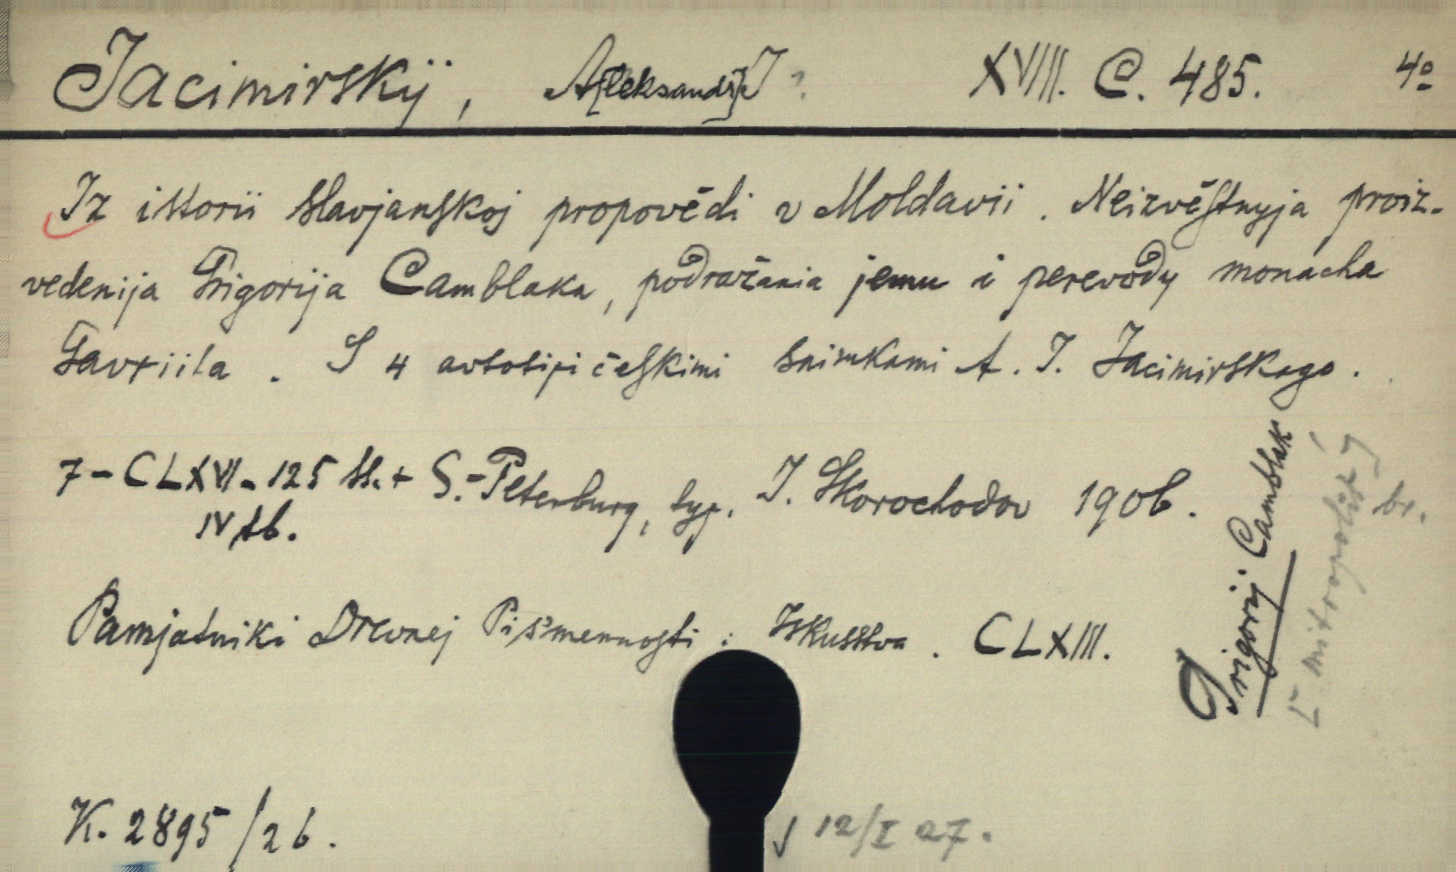 Jacimirskij, A[leksandr] I. XVIII. C. 485. 4º
Iz istorii slavjanskoj propovědi v Moldavii. Neizvěstnyja proiz-
vedenija Grigorija Camblaka, podražanija jemu i perevody monacha
Gavriila. S 4 avtotipičeskimi snimkami A. I. Jacimirskago.
7-CLXVI-125 ss.+ S.-Peterburg, typ. I. Skorochodov 1906. br.
IV tb.
Pamjatniki Drevnej Pis'mennosti i Iskusstva. CLXIII.
Grigorij Camblak
[mitropolit]
K. 2895/26. 12/I 27.